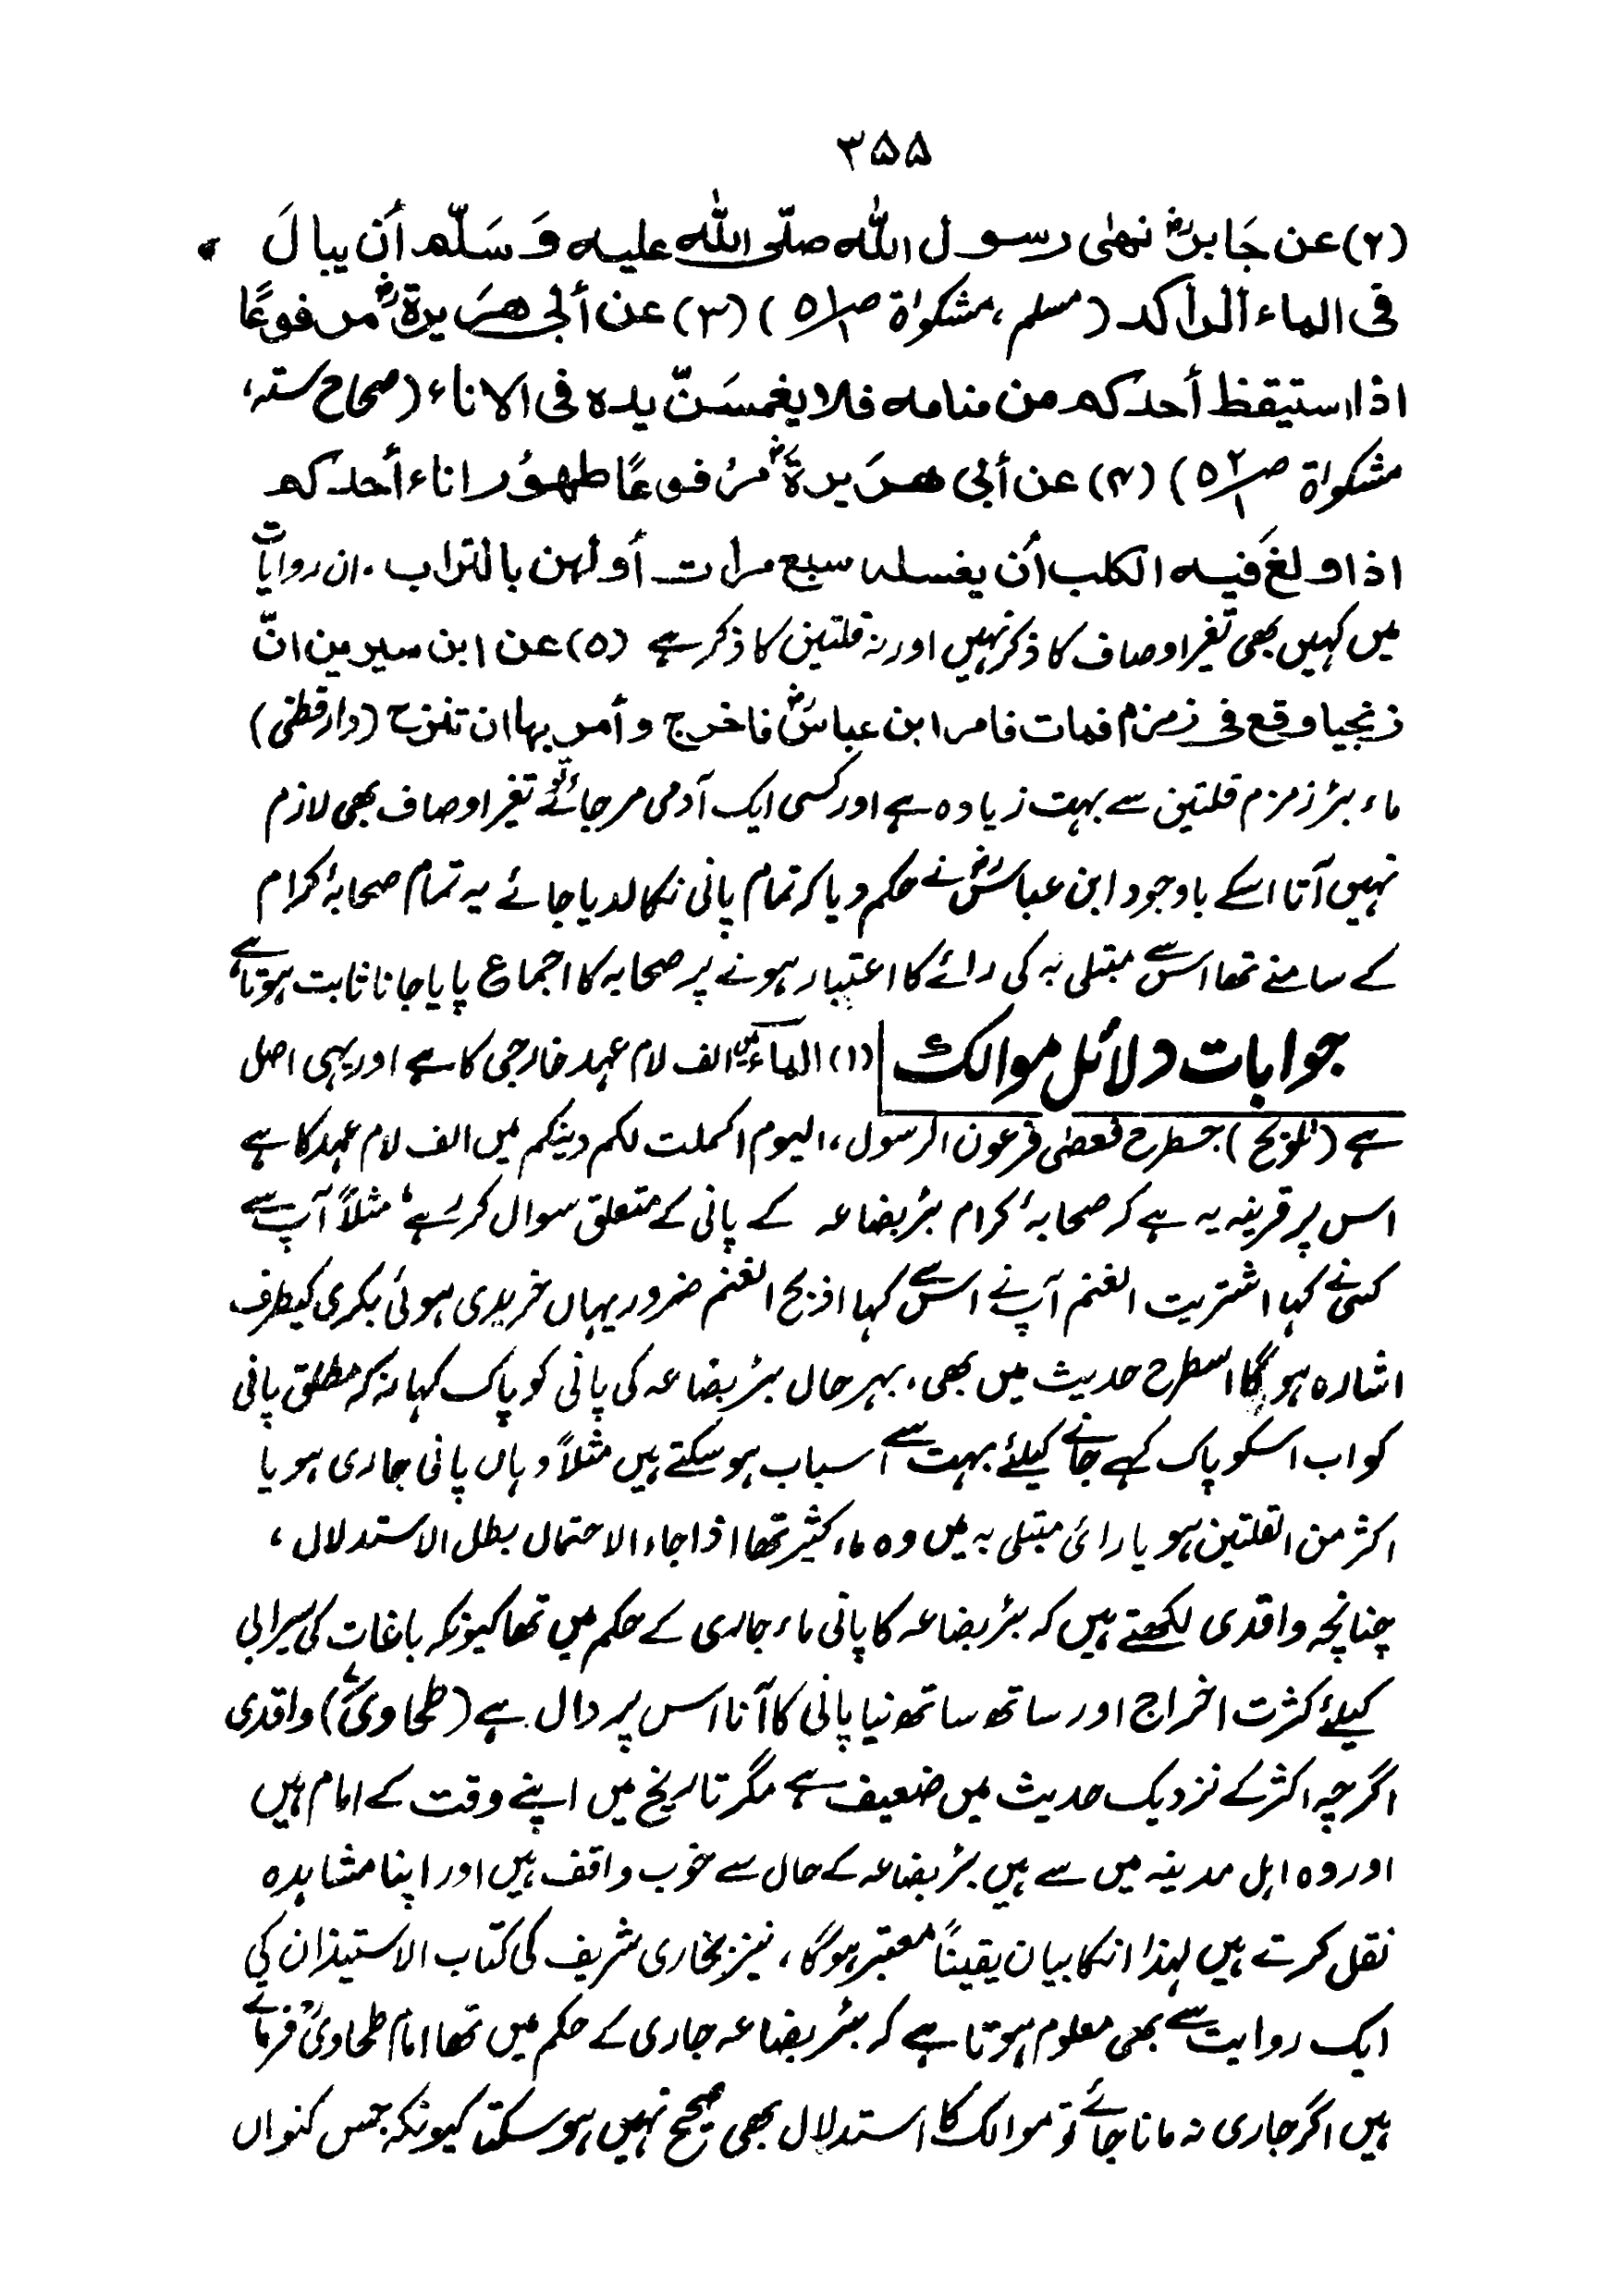 ۳۵۵
(۲) عن جَابرؓ نہٰی رسول اللّٰہ صلّی اللّٰہ علیہ وَسَلّم أن یبالَ
فی الماء الراکد (مسلم، مشکوٰۃ ص۵۱/۱) (۳) عن أبی ھریرۃؓ مرفوعًا
اذا استیقظ أحدکم من منامہ فلا یغمسَنّ یدہ فی الاناء (صحاح ستہ،
مشکوٰۃ ص۵۲/۱) (۴) عن أبی ھریرۃؓ مرفوعًا طھوُر اناء أحدکم
اذا ولغَ فیہ الکلب أن یغسلہ سبع مرات أولٰھن بالتراب ۔ ان روایات
میں کہیں بھی تغیر اوصاف کا ذکر نہیں اور نہ قلتین کا ذکر ہے (۵) عن ابن سیرین انّ
زنجیا وقع فی زمزم فمات فامر ابن عباسؓ فاخرج وأمر بہا ان تنزح (دارقطنی)
ماء بئر زمزم قلتین سے بہت زیادہ ہے اور کسی ایک آدمی مر جائے تو تغیر اوصاف بھی لازم
نہیں آتا اسکے باوجود ابن عباسؓ نے حکم دیا کہ تمام پانی نکالدیا جائے یہ تمام صحابۂ کرام
کے سامنے تھا اس سے مبتلی بہ کی رائے کا اعتبار ہونے پر صحابہ کا اجماع پایا جانا ثابت ہوتا ہے
جوابات دلائل موالک (۱) الماء میں الف لام عہد خارجی کا ہے اور یہی اصل
ہے (تلویح) جسطرح فعصٰی فرعون الرسول، الیوم اکملت لکم دینکم میں الف لام عہد کا ہے
اس پر قرینہ یہ ہے کہ صحابۂ کرام بئر بضاعہ کے پانی کے متعلق سوال کر رہے، مثلاً آپ سے
کسی نے کہا اشتریت الغنم آپ نے اس سے کہا اذبح الغنم ضرور یہاں خریدی ہوئی بکری کیطرف
اشارہ ہوگا اسطرح حدیث میں بھی، بہرحال بئر بضاعہ کی پانی کو پاک کہا نہ کہ مطلق پانی
کو اب اسکو پاک کہے جانے کیلئے بہت سے اسباب ہوسکتے ہیں مثلاً وہاں پانی جاری ہو یا
اکثر من القلتین ہو یا رائ مبتلی بہ میں وہ ماء کثیر تھا اذا جاء الاحتمال بطل الاستدلال،
چنانچہ واقدی لکھتے ہیں کہ بئر بضاعہ کا پانی ماء جاری کے حکم میں تھا کیونکہ باغات کی سیرابی
کیلئے کثرت اخراج اور ساتھ ساتھ نیا پانی کا آنا اس پر دال ہے (طحاویؒ) واقدی
اگرچہ اکثر کے نزدیک حدیث میں ضعیف ہے مگر تاریخ میں اپنے وقت کے امام ہیں
اور وہ اہل مدینہ میں سے ہیں بئر بضاعہ کے حال سے خوب واقف ہیں اور اپنا مشاہدہ
نقل کرتے ہیں لہذا انکا بیان یقیناً معتبر ہوگا، نیز بخاری شریف کی کتاب الاستیذان کی
ایک روایت سے بھی معلوم ہوتا ہے کہ بئر بضاعہ جاری کے حکم میں تھا امام طحاویؒ فرماتے
ہیں اگر جاری نہ مانا جائے تو موالک کا استدلال بھی صحیح نہیں ہوسکتا کیونکہ جس کنواں